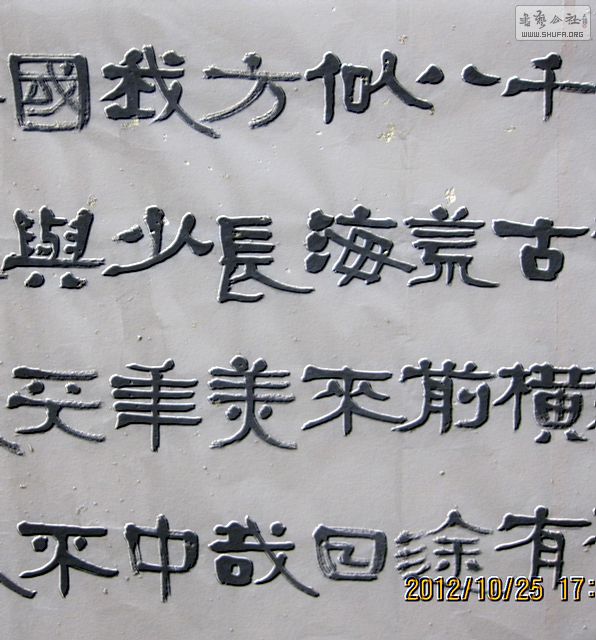 千古橫有
八荒前途
似海來日
方長美哉
我少年中
國與天不
書藝公社
WWW.SHUFA.ORG
2012/10/25 17: